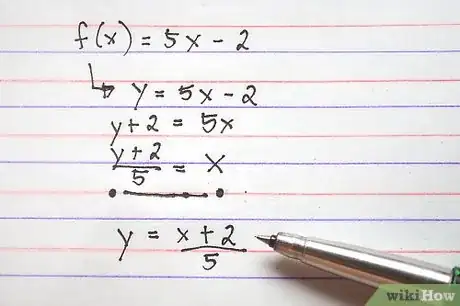 f(x) = 5x - 2
↳ y = 5x - 2
y + 2 = 5x
(y + 2)/5 = x
y = (x + 2)/5
wikiHow